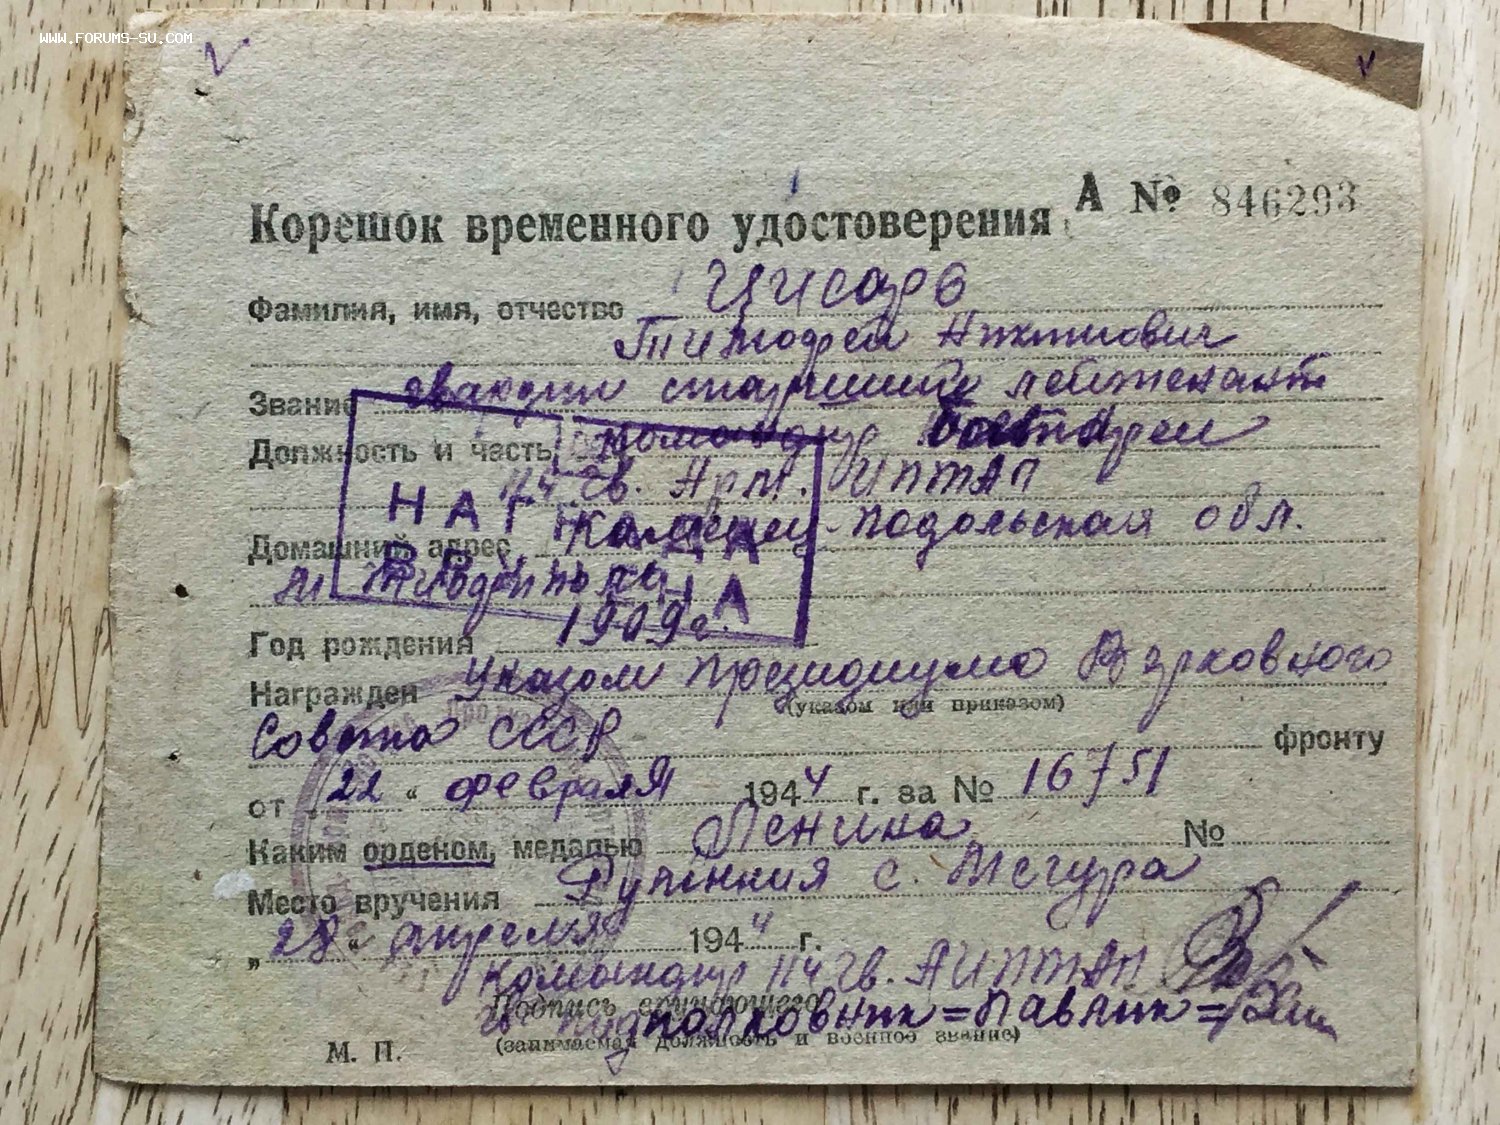 www.forums-su.com
Корешок временного удостоверения А № 846293
Фамилия, имя, отчество Цисарь
Тимофей Никитович
Звание гвардии старший лейтенант
Должность и часть командир батареи
114 Гв. Арт. ИПТАП
НАГРАДА
ВРУЧЕНА
Домашний адрес Каменец-Подольская обл.
Год рождения 1909 г.
Награжден Указом Президиума Верховного
(указом или приказом)
Совета СССР фронту
от " 22 " февраля 1944 г. за № 16751
Каким орденом, медалью Ленина №
Место вручения Румыния с. Тегура
„ 28 " апреля 1944 г.
Командир 114 Гв. АИПТАП
Подпись вручающего
гв. подполковник = Павлик =
(занимаемая должность и военное звание)
М. П.